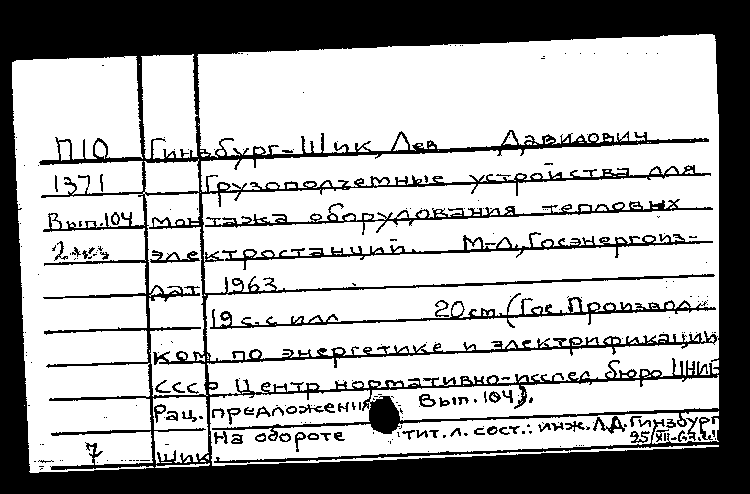 П10 Гинзбург-Шик, Лев Давидович
1371 Грузоподъемные устройства для
Вып.104 монтажа оборудования тепловых
2 экз электростанций. М.-Л., Госэнергоиз-
дат 1963.
19 с. с илл 20 см. (Гос. Производ.
ком. по энергетике и электрификации
СССР Центр нормативно-исслед. бюро ЦНИБ
Рац. предложения Вып. 104).
На обороте тит. л. сост.: инж. Л.Д. Гинзбург
7 Шик.